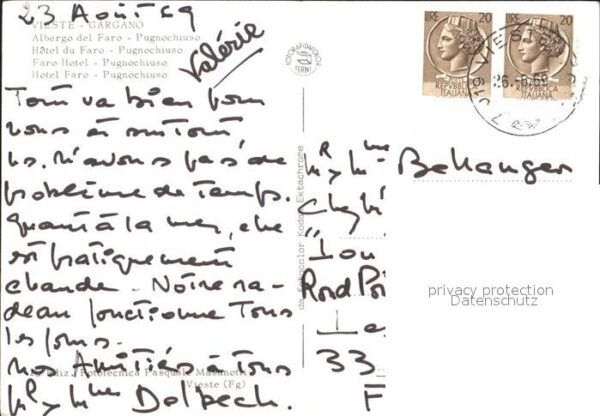 23 Août 69
VIESTE - GARGANO
Albergo del Faro - Pugnochiuso
Hôtel du Faro - Pugnochiuso
Faro Hotel - Pugnochiuso
Hotel Faro - Pugnochiuso
Valérie
Tout va bien pour
nous
ns. N'avons pas de
problème de temps.
Quant à la mer, elle
est pratiquement
chaude. Notre ra-
deau fonctionne Tous
les jours.
Nos Amitiés à Tous
Mr Mme Dolpech.
Ediz. Fototecnica Pasquale
Vieste (Fg)
da Fotocolor Kodak Ektachrome
FOTORAPIDACOLOR
TERNI
LIRE 20
REPVBBLICA
ITALIANA
LIRE 20
REPVBBLICA
ITALIANA
26.-8.69
Mr Mme Bellanger
Rond Poi
33
F
privacy protection
Datenschutz